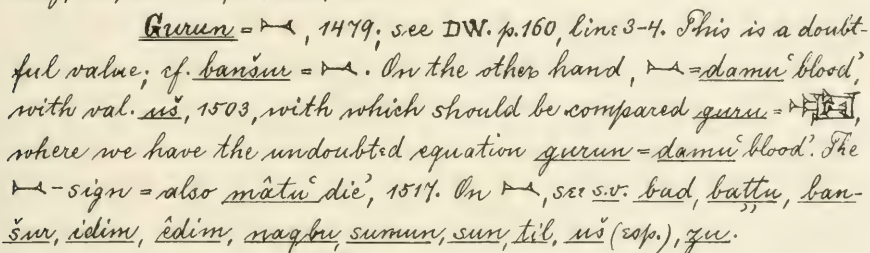 Gurun = 𒁁, 1479; see DW. p.160, line 3-4. This is a doubt-
ful value; cf. banšur = 𒁁. On the other hand, 𒁁 = damu ‘blood’,
with val. uš, 1503, with which should be compared guru =
where we have the undoubted equation gurun = damu ‘blood’. The
𒁁-sign = also mâtu ‘die’, 1517. On 𒁁, see s.v. bad, baṭṭu, ban-
šur, idim, êdim, nagbu, sumun, sun, til, uš (esp.), zu.